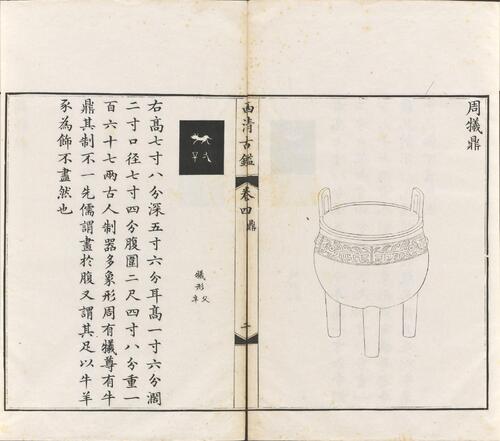 周犧鼎
西清古鑑
卷四
鼎
二
犧形
父
右高七寸八分深五寸六分耳高一寸六分濶
二寸口徑七寸四分腹圍二尺四寸八分重一
百六十七兩古人制器多象形周有犧尊有牛
鼎其制不一先儒謂畫於腹又謂其足以牛羊
豕為飾不盡然也